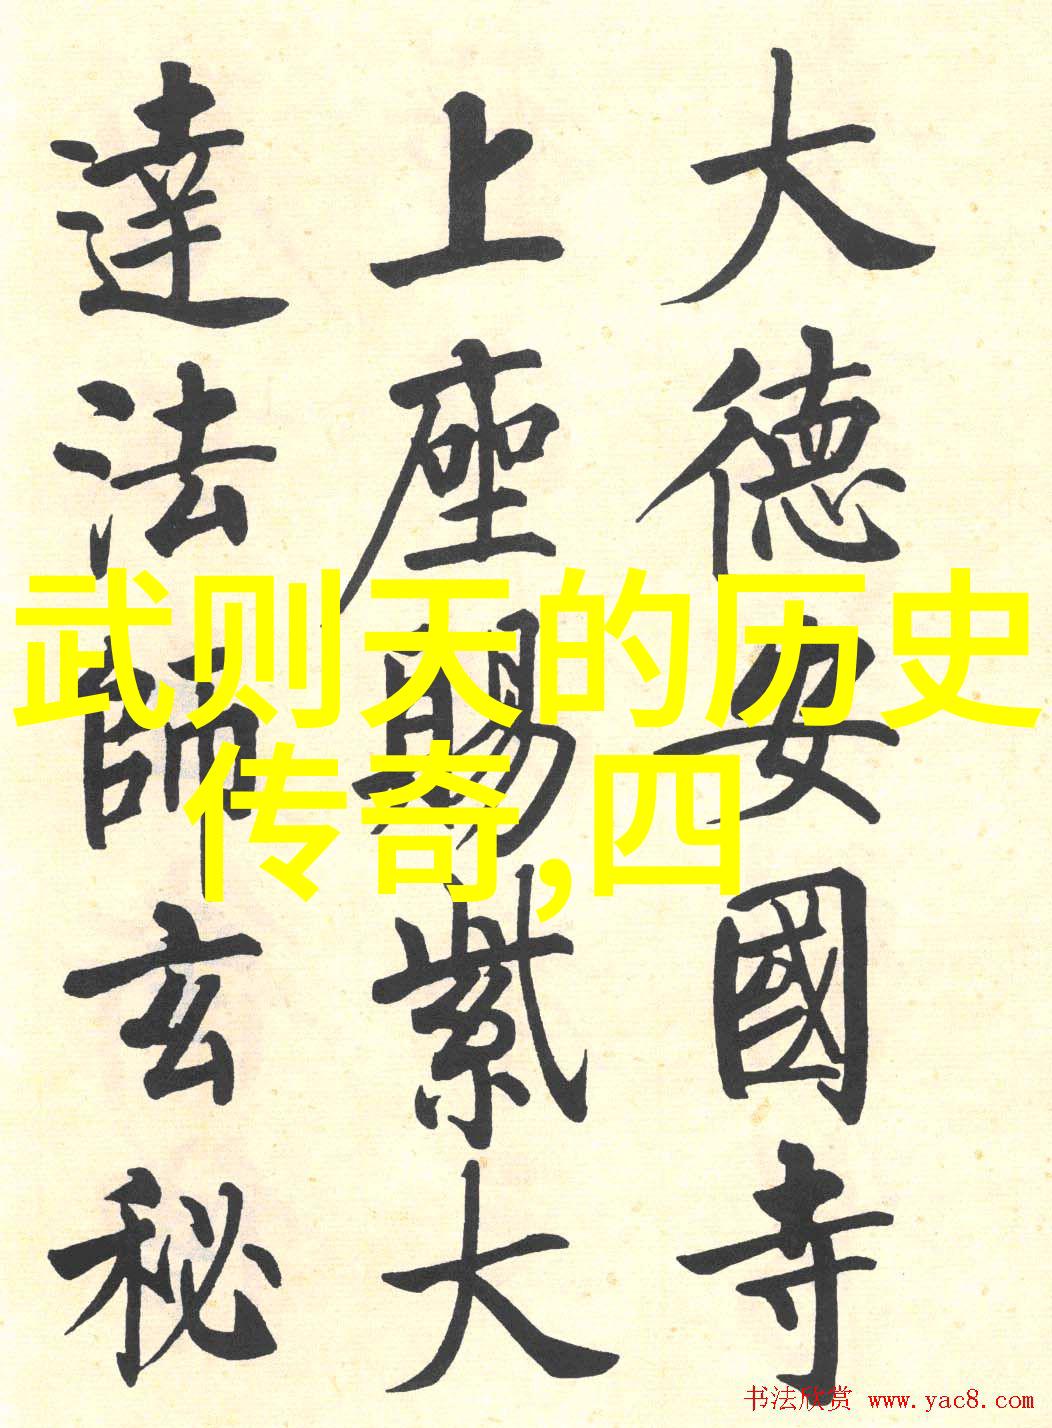 大德安國寺
上座賜紫大
達法師玄秘
武则天的历史
传奇,四
书法欣赏 www.yac8.com